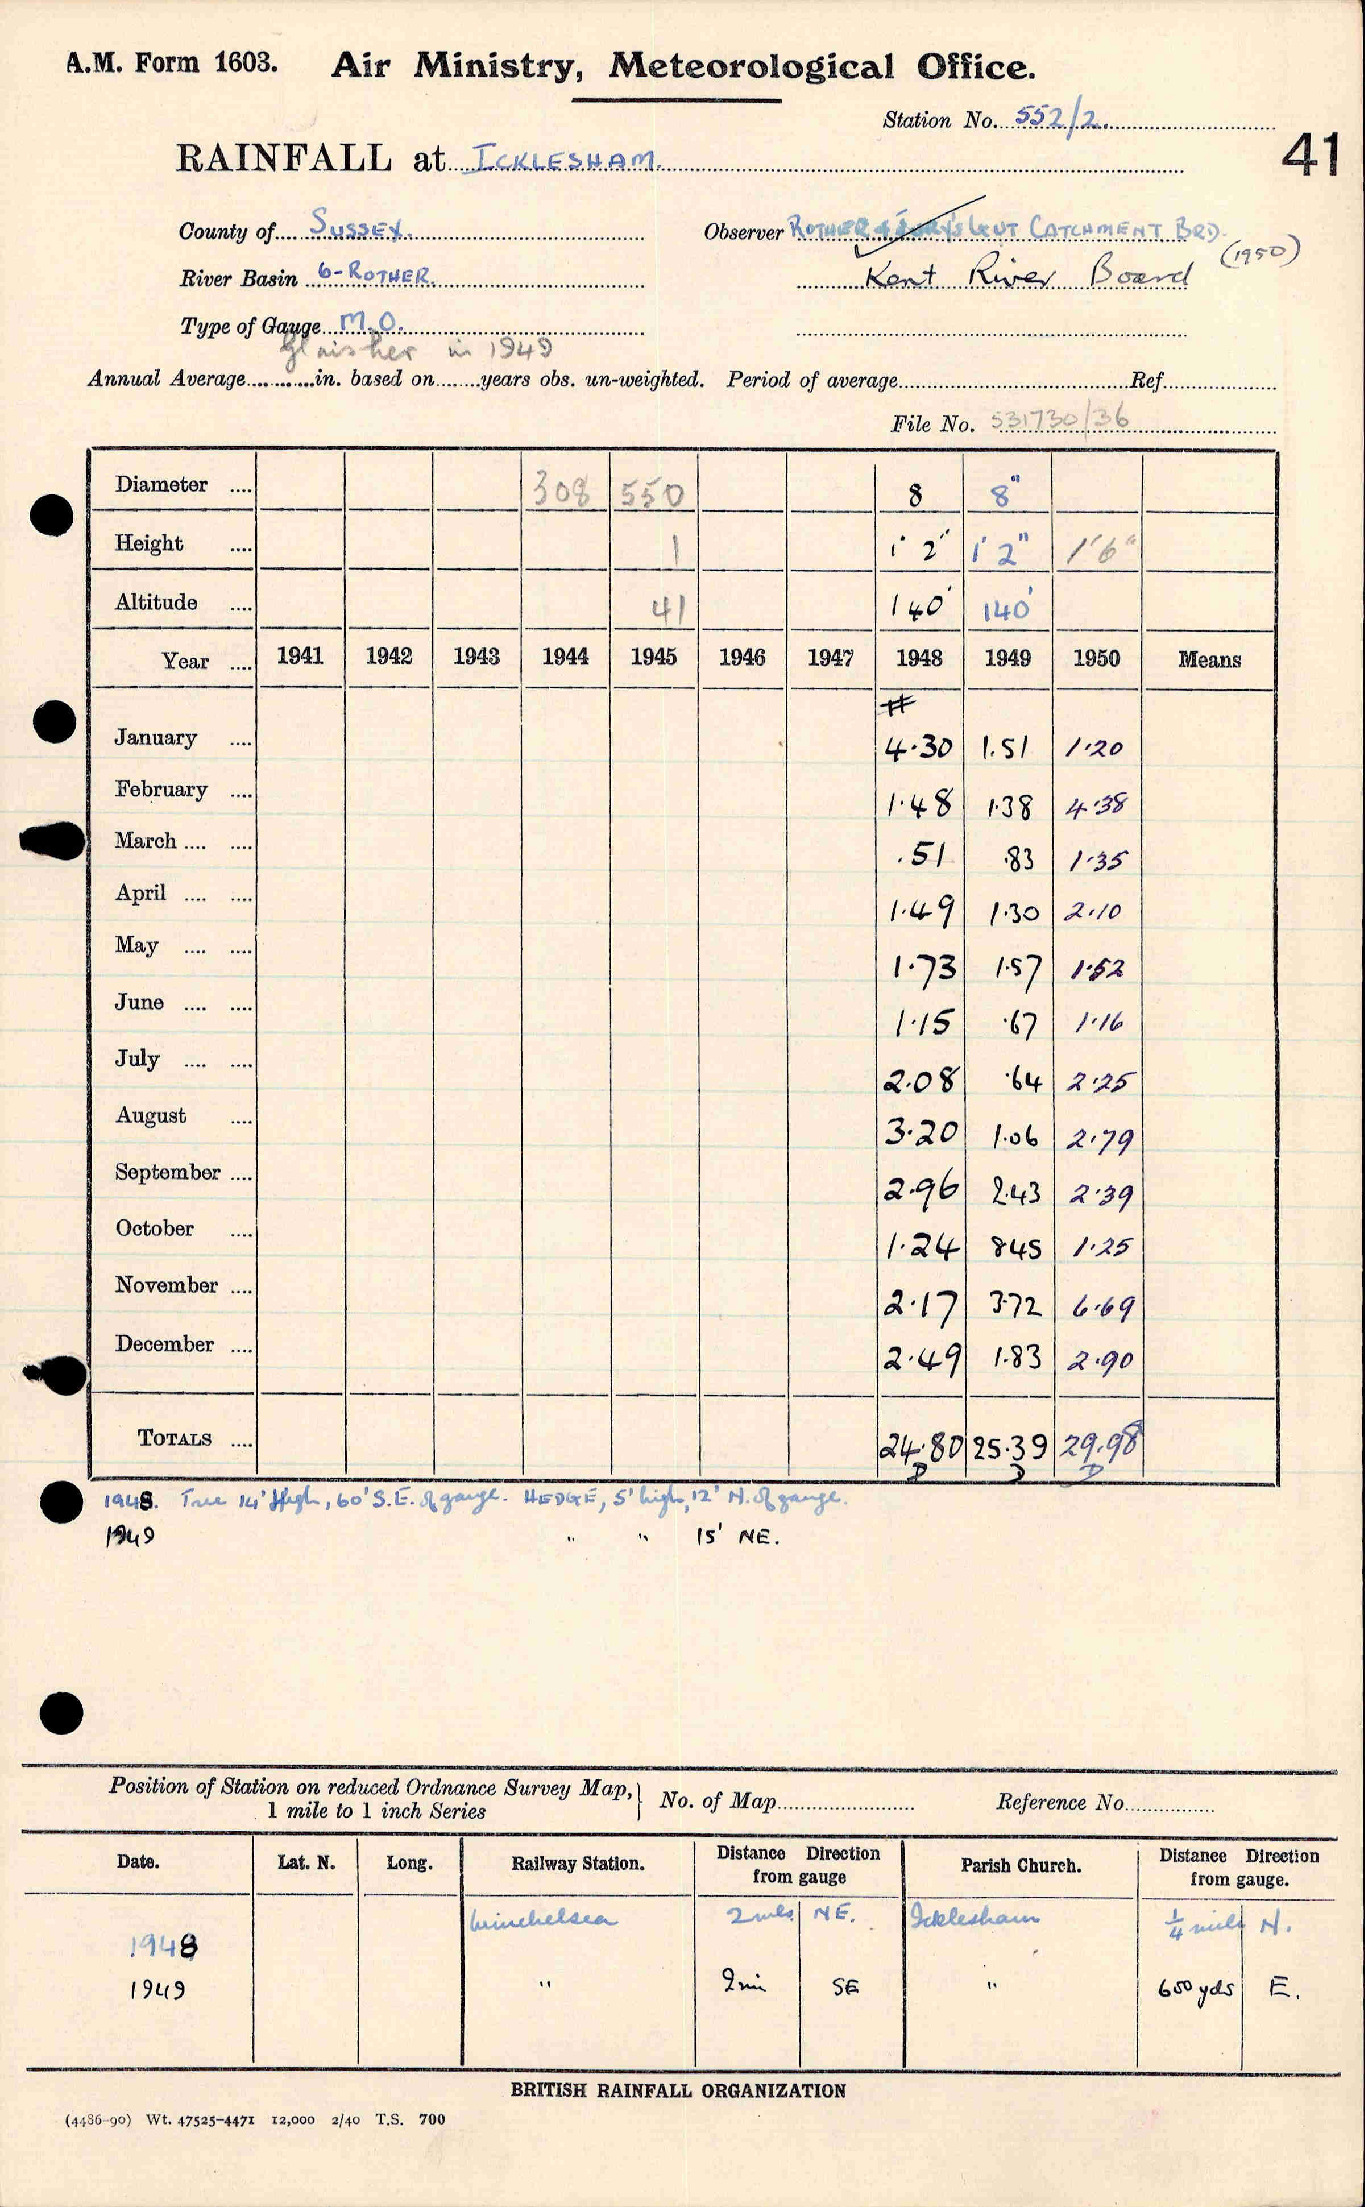 A.M. Form 1603. Air Ministry, Meteorological Office.
Station No. 552/2.
41
RAINFALL at ICKLESHAM.
County of SUSSEX. Observer ROTHER & JURY'S GUT CATCHMENT BRD.
River Basin 6-ROTHER. Kent River Board (1950)
Type of Gauge M.O.
Glaisher in 1949
Annual Average in. based on years obs. un-weighted. Period of average Ref.
File No. 531730/36
Diameter 308 550 8 8"
Height 1 1' 2" 1' 2" 1'6"
Altitude 41 140' 140'
Year 1941 1942 1943 1944 1945 1946 1947 1948 1949 1950 Means
#
January 4.30 1.51 1.20
February 1.48 1.38 4.38
March .51 .83 1.35
April 1.49 1.30 2.10
May 1.73 1.57 1.52
June 1.15 .67 1.16
July 2.08 .64 2.25
August 3.20 1.06 2.79
September 2.96 2.43 2.39
October 1.24 8.45 1.25
November 2.17 3.72 6.69
December 2.49 1.83 2.90
TOTALS 24.80 25.39 29.98
D D D
1948. Tree 14' High, 60' S.E. of gauge. HEDGE, 5' high, 12' N. of gauge.
1949 " " 15' NE.
Position of Station on reduced Ordnance Survey Map, 1 mile to 1 inch Series } No. of Map Reference No.
Date. Lat. N. Long. Railway Station. Distance Direction from gauge Parish Church. Distance Direction from gauge.
1948 Winchelsea 2 mls. NE. Icklesham 1/4 mile N.
1949 " 2 mi SE " 600 yds E.
BRITISH RAINFALL ORGANIZATION
(4486-90) Wt. 47525-4471 12,000 2/40 T.S. 700